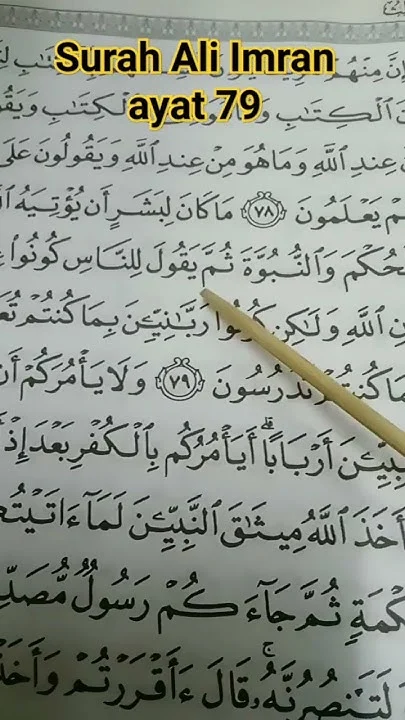 Surah Ali Imran
ayat 79
مِنْهُمْ
الْكِتَٰبِ الْكِتَٰبِ وَيَقُو
عِندِ اللَّهِ وَمَا هُوَ مِنْ عِندِ اللَّهِ وَيَقُولُونَ عَلَى
مْ يَعْلَمُونَ ٧٨ مَا كَانَ لِبَشَرٍ أَن يُؤْتِيَهُ ال
لْحُكْمَ وَالنُّبُوَّةَ ثُمَّ يَقُولَ لِلنَّاسِ كُونُوا
نِ اللَّهِ وَلَٰكِن كُونُوا رَبَّٰنِيِّۦنَ بِمَا كُنتُمْ تُعَ
مَا كُنتُمْ تَدْرُسُونَ ٧٩ وَلَا يَأْمُرَكُمْ أَن
بِيِّۦنَ أَرْبَابًا ۗ أَيَأْمُرُكُم بِالْكُفْرِ بَعْدَ إِذْ
أَخَذَ اللَّهُ مِيثَٰقَ النَّبِيِّۦنَ لَمَآ ءَاتَيْتُ
كْمَةٍ ثُمَّ جَآءَكُمْ رَسُولٌ مُّصَدِّ
لَتَنصُرُنَّهُۥ ۚ قَالَ ءَأَقْرَرْتُمْ وَأَخَذْ